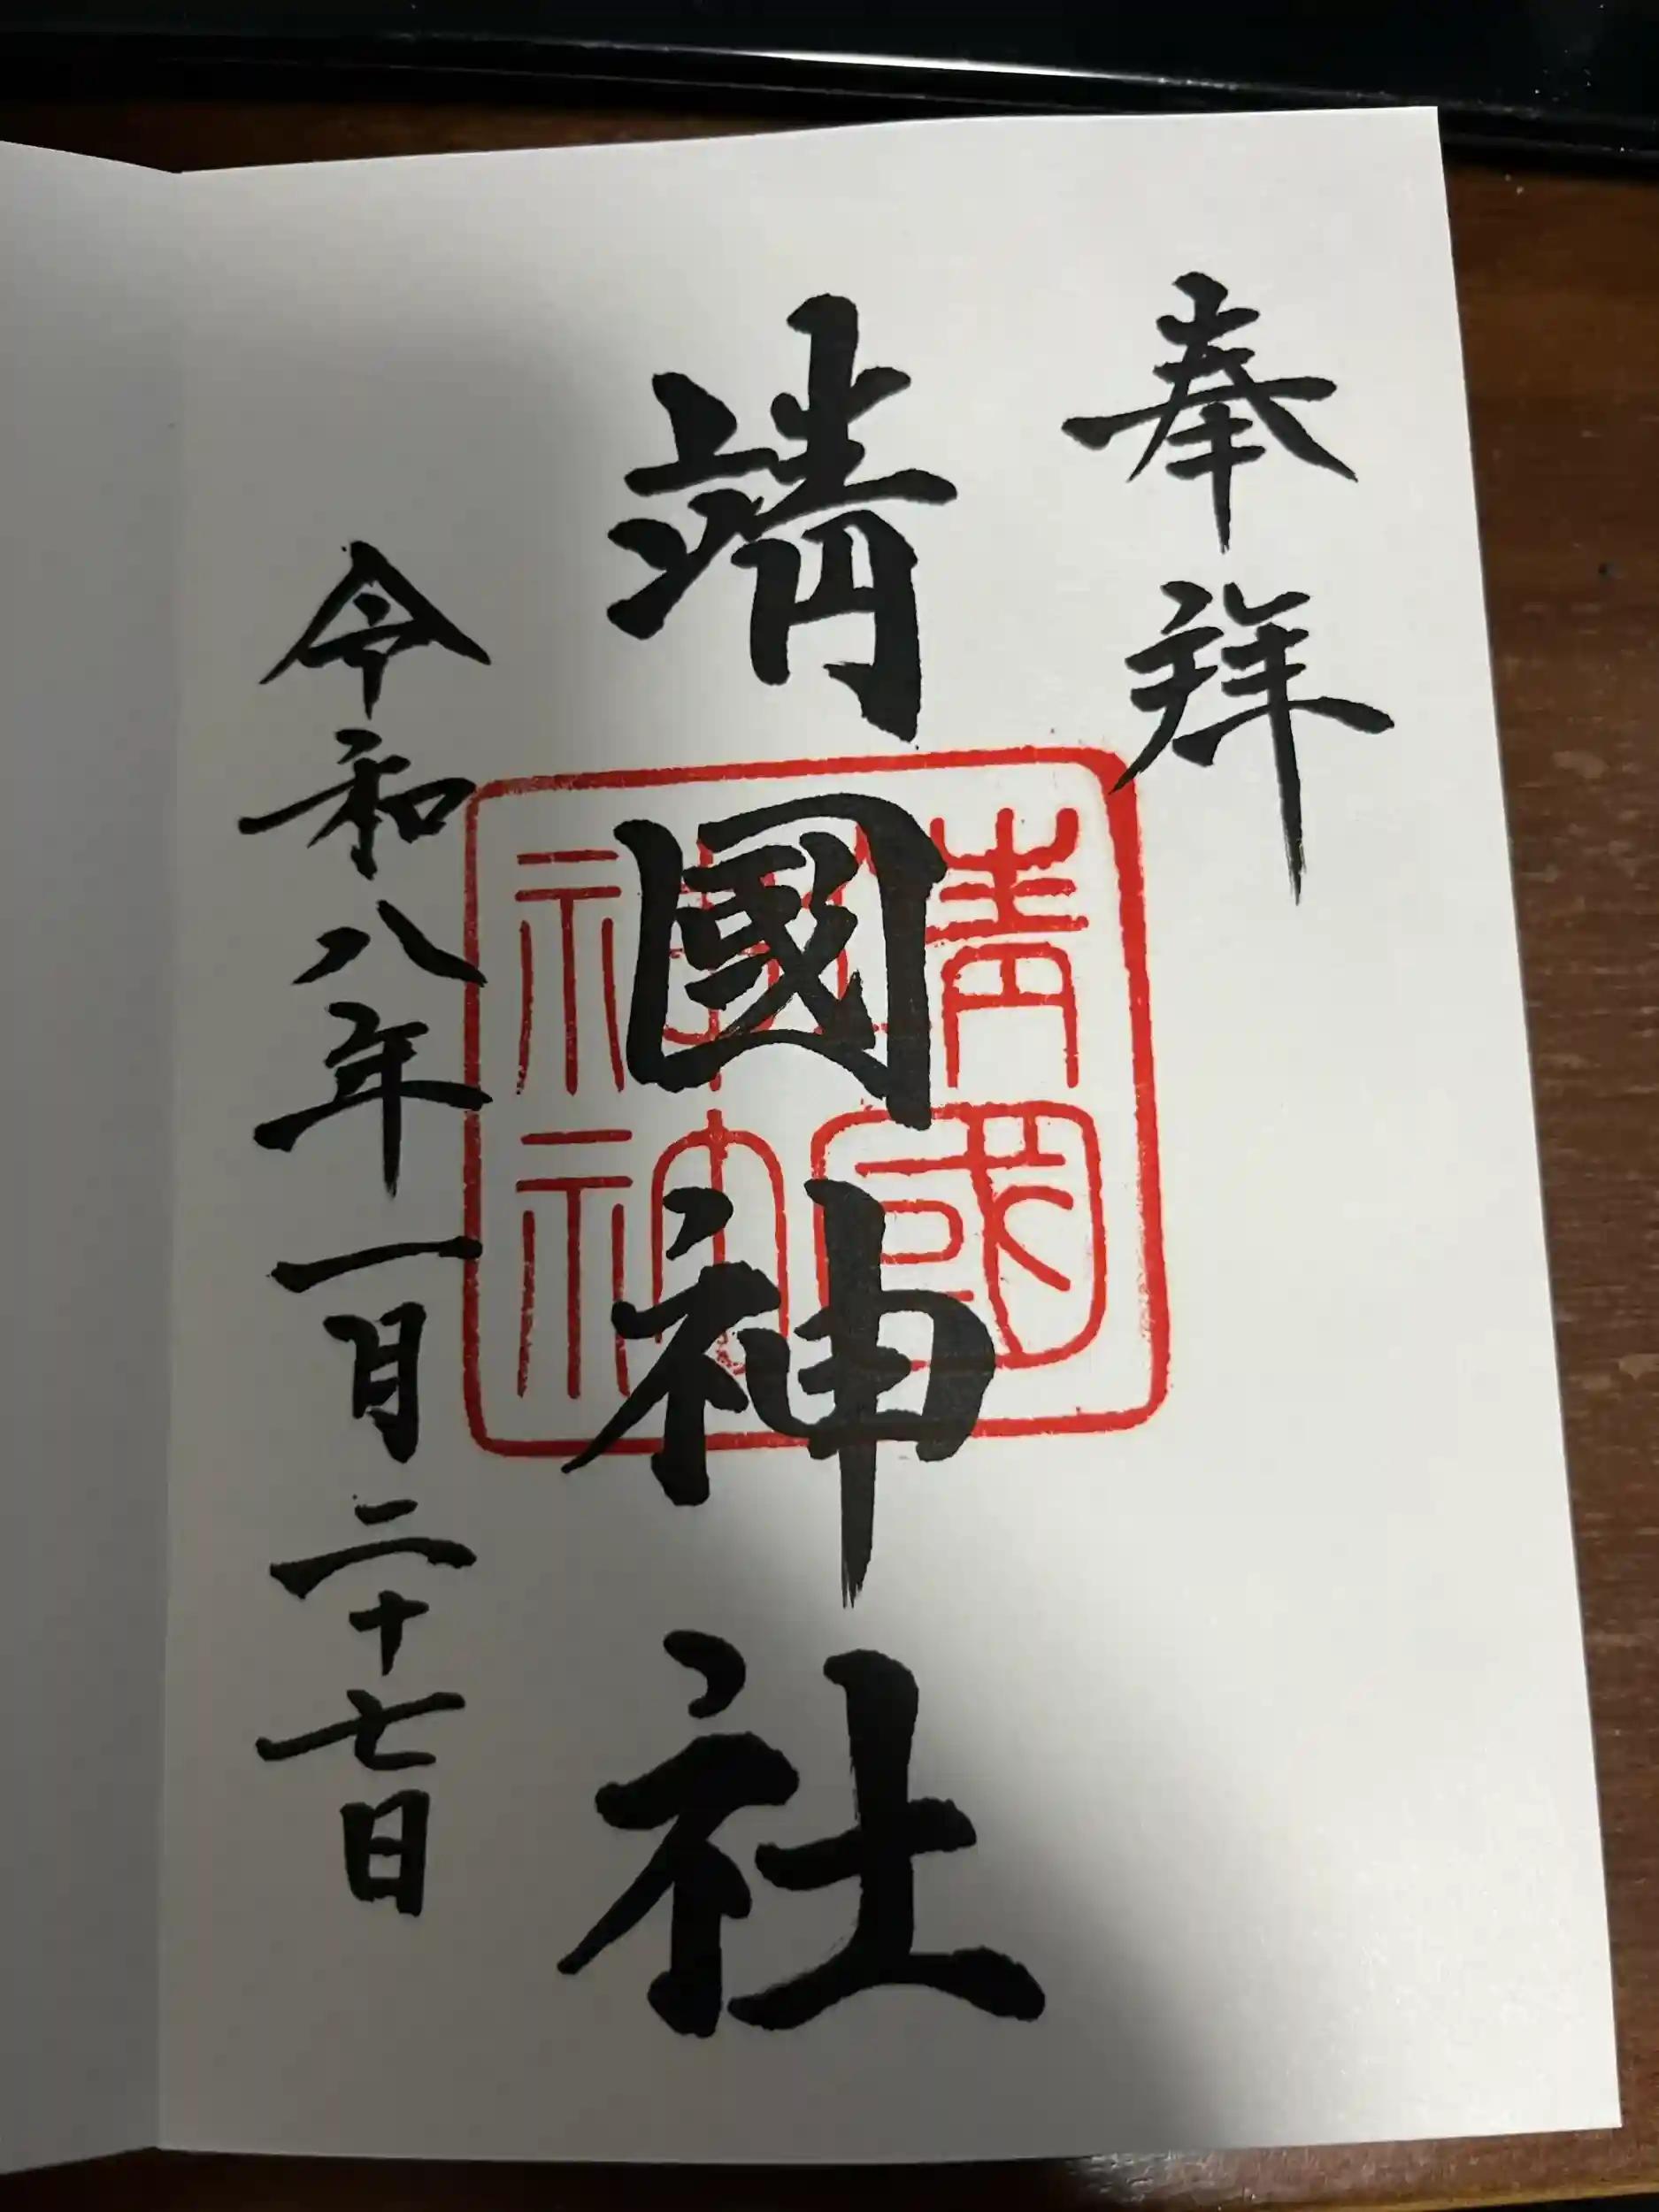 奉拝
靖國神社
靖國神社
令和八年一月二十七日